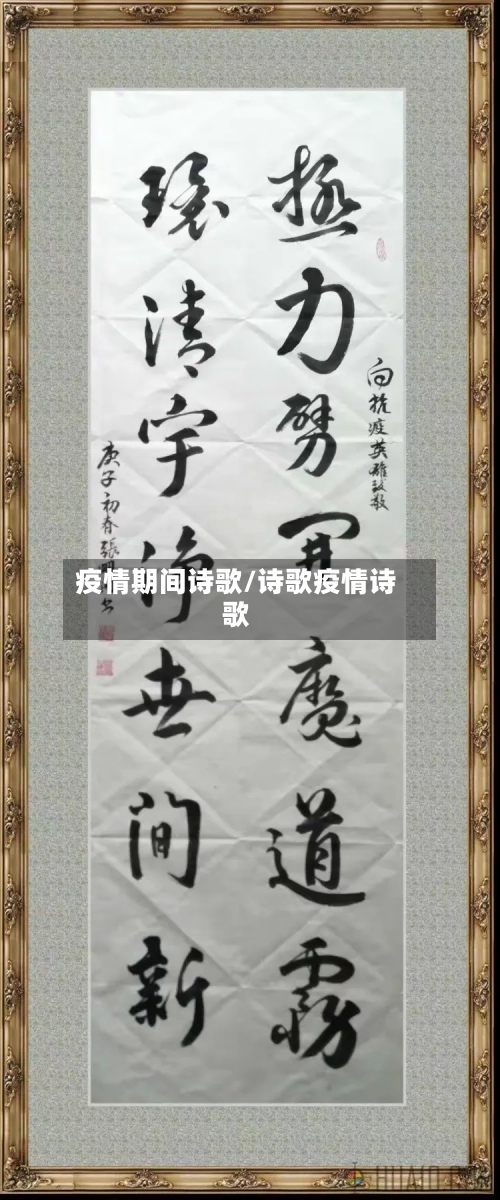 向抗疫英雄致敬
極力劈開魔道霧
環清宇净世间新
庚子初春張书
疫情期间诗歌/诗歌疫情诗
歌